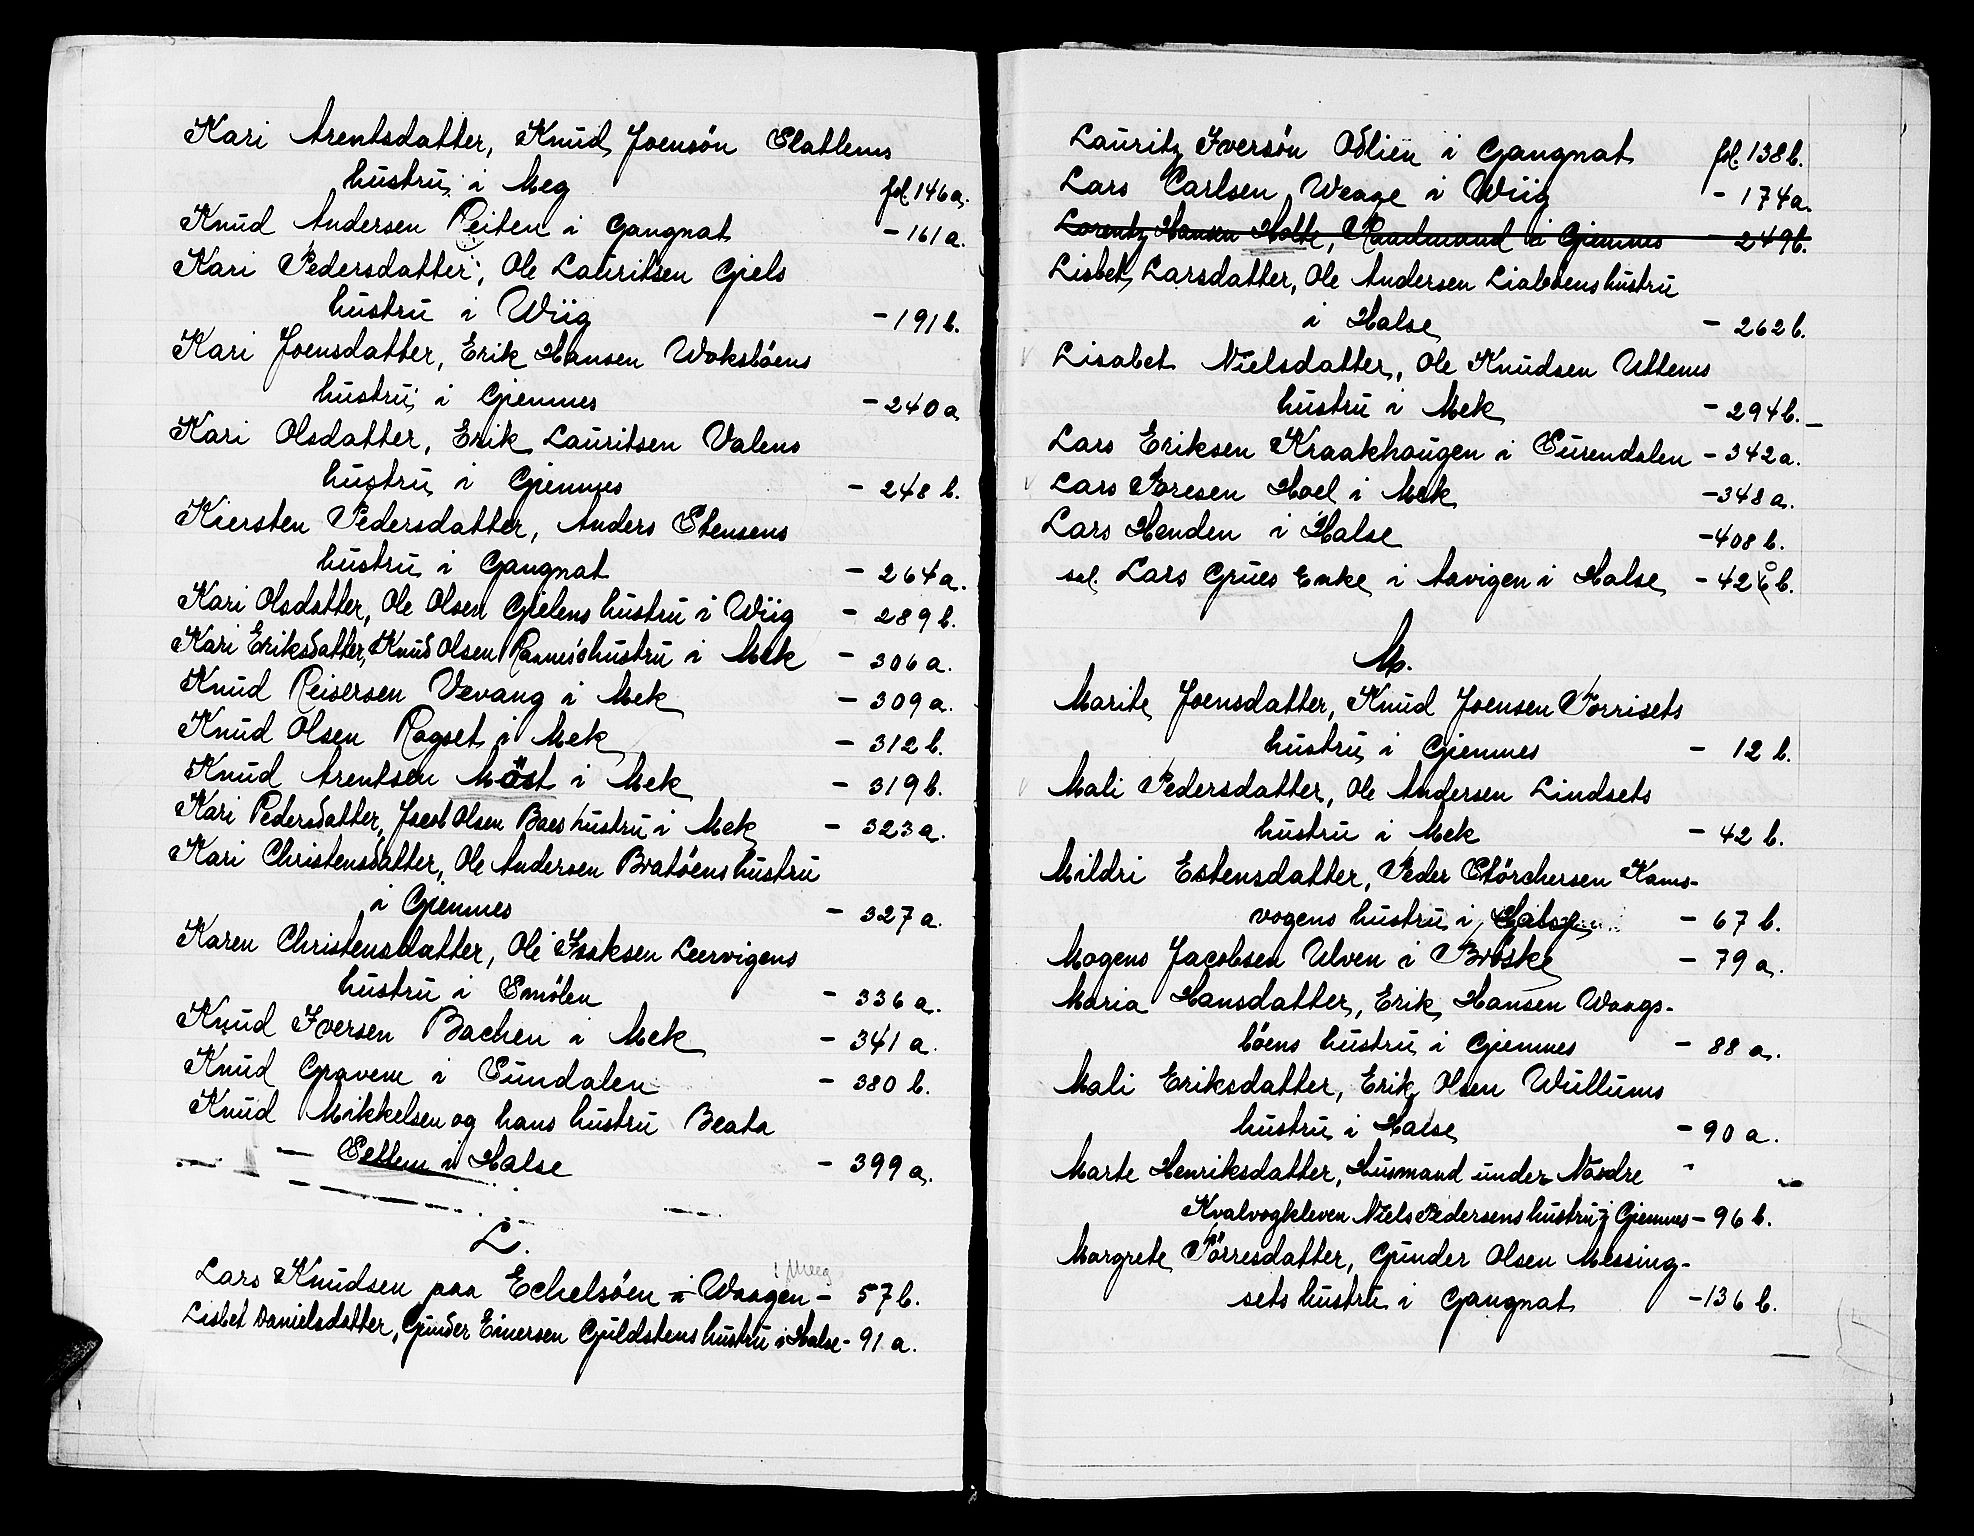 Kari Arentsdatter, Knud Joensön Slatlems
hustru i Meg fol. 146 a.
Knud Andersen Reiten i Gangnat - 161 a.
Kari Pedersdatter, Ole Lauritsen Gjels
hustru i Wiig - 191 b.
Kari Joensdatter, Erik Hansen Woksböens
hustru i Gjemnes - 240 a
Kari Olsdatter, Erik Lauritsen Valens
hustru i Gjemnes - 248 b.
Kiersten Pedersdatter, Anders Stensens
hustru i Gangnat - 264 a.
Kari Olsdatter, Ole Olsen Gjelens hustru i Wiig - 289 b.
Kari Eriksdatter, Knud Olsen Rannes hustru i Mek - 306 a.
Knud Reisersen Vevang i Mek - 309 a.
Knud Olsen Rogset i Mek - 312 b.
Knud Arentsen Möst i Mek - 319 b.
Kari Pedersdatter, Jacob Olsen Boes hustru i Mek - 323 a.
Kari Christensdatter, Ole Andersen Bratöens hustru
i Gjemnes - 327 a.
Karen Christensdatter, Ole Isaksen Leervigens
hustru i Smölen - 336 a.
Knud Iversen Bachen i Mek - 341 a.
Knud Gravem i Sundalen - 380 b.
Knud Mikkelsen og hans hustru Beata
Settem i Halse - 399 a.
L.
i Meeg
Lars Knudsen paa Echelsöen i Waagen - 57 b.
Lisbet Danielsdatter, Gunder Einersen Guldstens hustru i Halse - 91 a.
Lauritz Iversön Ödlien i Gangnat fol. 138 b.
Lars Carlsen Weage i Wiig - 174 a.
Lorentz Hansen Holte, Raadmand i Gjemnes - 249 b.
Lisbet Larsdatter, Ole Andersen Liaböens hustru
i Halse - 262 b.
Lisabet Nielsdatter, Ole Knudsen Uttems
hustru i Mek - 294 b.
Lars Eriksen Kraakhaugen i Surendalen - 342 a.
Lars Toresen Hoel i Mek - 348 a.
Lars Henden i Halse - 408 b.
sal. Lars Grues Enke i Aavigen i Halse - 426 b.
M.
Marite Joensdatter, Knud Joensen Torrisets
hustru i Gjemnes - 12 b.
Mali Pedersdatter, Ole Andersen Lindsets
hustru i Mek - 42 b.
Mildri Estensdatter, Peder Störchersen Kams-
vogens hustru i Halse - 67 b.
Mogens Jacobsen Ulven i Bröske - 79 a.
Maria Hansdatter, Erik Hansen Waags-
böens hustru i Gjemnes - 88 a.
Mali Eriksdatter, Erik Olsen Wullums
hustru i Halse - 90 a.
Marte Henriksdatter, Husmand under Nordre
Kvalvogkleven Niels Pedersens hustru i Gjemnes - 96 b.
Margrete Törresdatter, Gunder Olsen Messing-
sets hustru i Gangnat - 136 b.